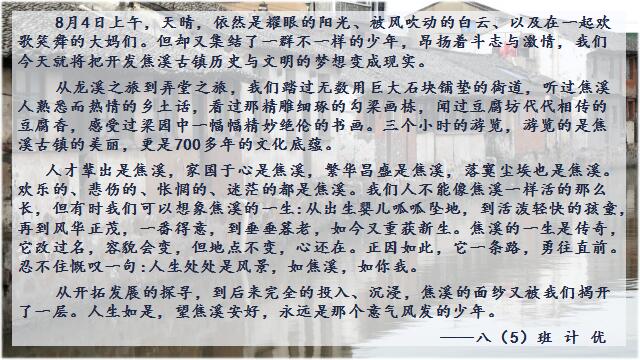 8月4日上午，天晴，依然是耀眼的阳光、被风吹动的白云、以及在一起欢
歌笑舞的大妈们。但却又集结了一群不一样的少年，昂扬着斗志与激情，我们
今天就将把开发焦溪古镇历史与文明的梦想变成现实。
从龙溪之旅到弄堂之旅，我们踏过无数用巨大石块铺垫的街道，听过焦溪
人熟悉而热情的乡土话，看过那精雕细琢的勾梁画栋，闻过豆腐坊代代相传的
豆腐香，感受过梁园中一幅幅精妙绝伦的书画。三个小时的游览，游览的是焦
溪古镇的美丽，更是700多年的文化底蕴。
人才辈出是焦溪，家国于心是焦溪，繁华昌盛是焦溪，落寞尘埃也是焦溪。
欢乐的、悲伤的、怅惘的、迷茫的都是焦溪。我们人不能像焦溪一样活的那么
长，但有时我们可以想象焦溪的一生:从出生婴儿呱呱坠地，到活泼轻快的孩童，
再到风华正茂，一番得意，到垂垂暮老，如今又重获新生。焦溪的一生是传奇，
它改过名，容貌会变，但地点不变，心还在。正因如此，它一条路，勇往直前。
忍不住慨叹一句:人生处处是风景，如焦溪，如你我。
从开拓发展的探寻，到后来完全的投入、沉浸，焦溪的面纱又被我们揭开
了一层。人生如是，望焦溪安好，永远是那个意气风发的少年。
——八（5）班 计 优